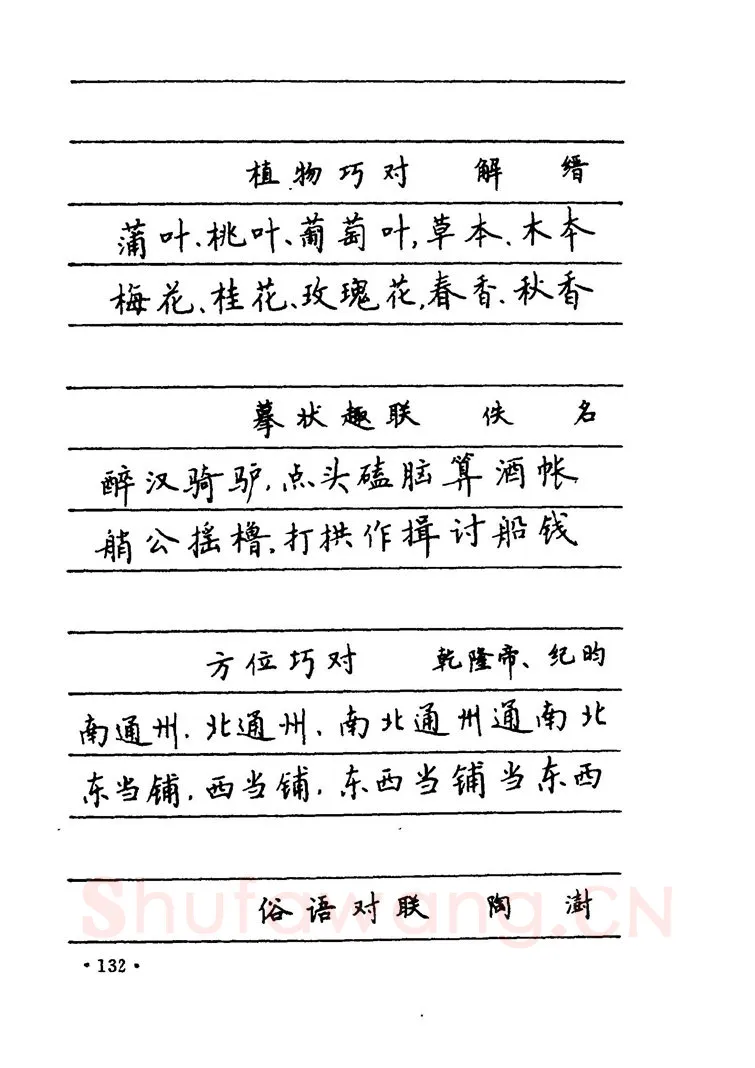 植物巧对 解缙
蒲叶、桃叶、葡萄叶,草本、木本
梅花、桂花、玫瑰花,春香、秋香
摹状趣联 佚名
醉汉骑驴,点头磕脑算酒帐
艄公摇橹,打拱作揖讨船钱
方位巧对 乾隆帝、纪昀
南通州,北通州,南北通州通南北
东当铺,西当铺,东西当铺当东西
俗语对联 陶澍
Shufawang.CN
·132·